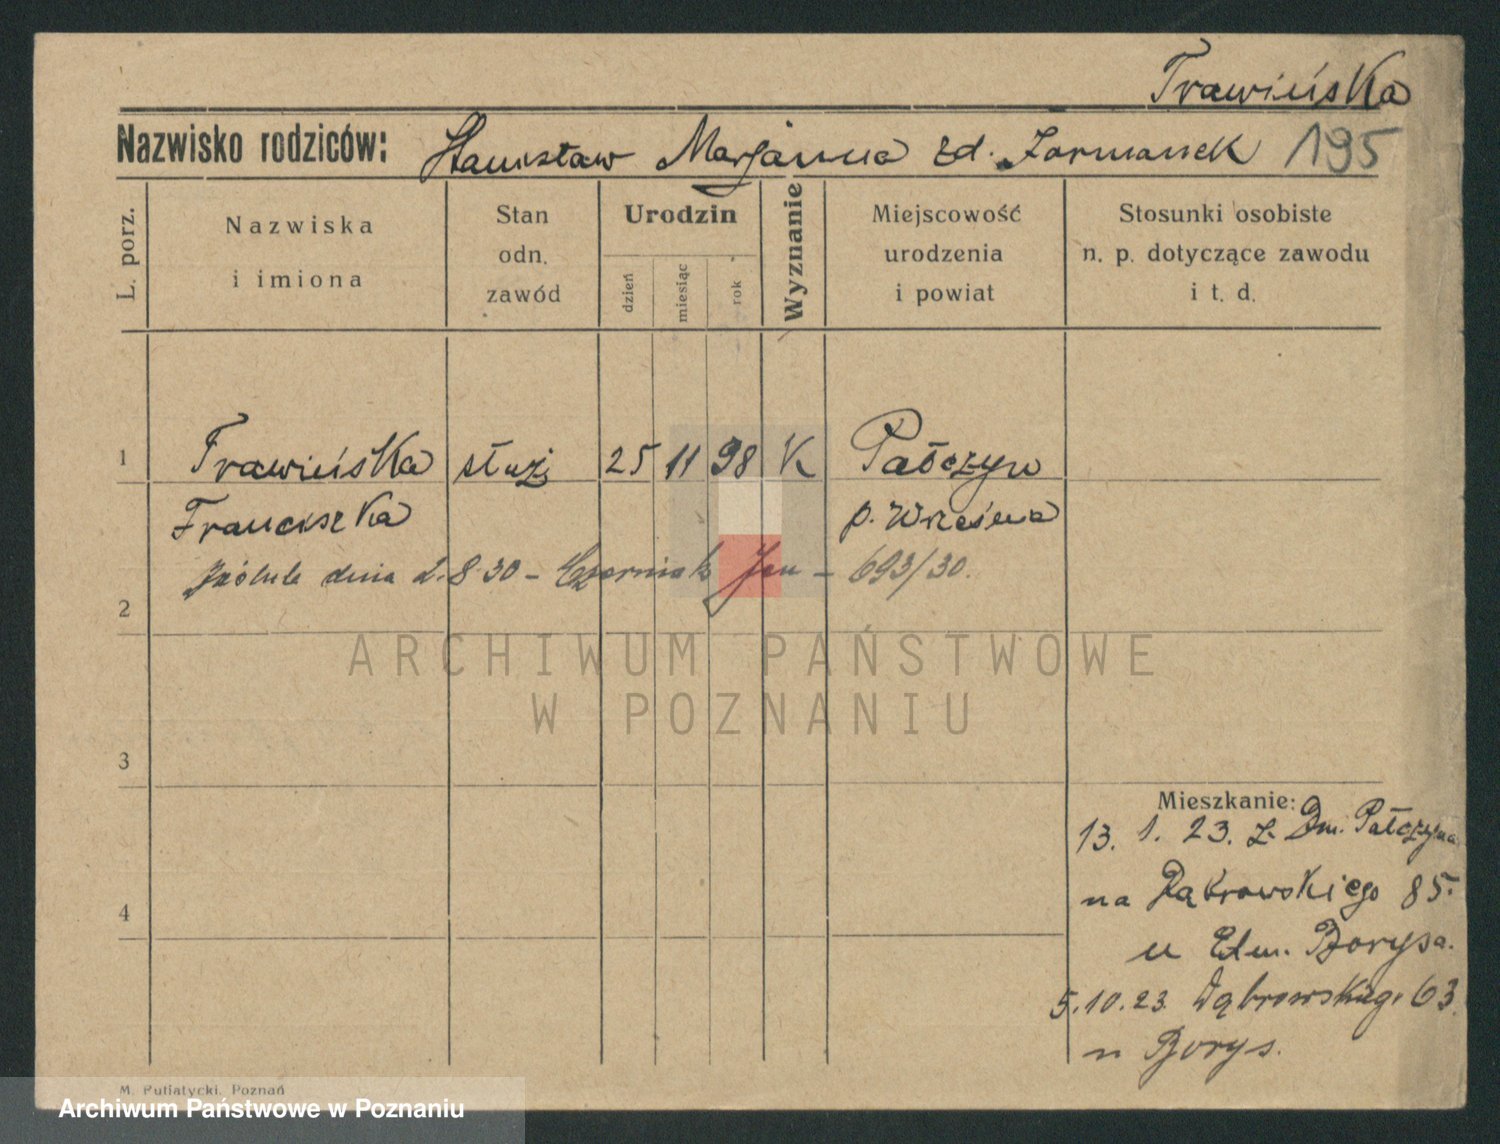 Trawińska
Nazwisko rodziców: Stanisław Marjanna zd. Zormanek 195
L. porz.
Nazwiska i imiona
Stan odn. zawód
Urodzin
dzień
miesiąc
rok
Wyznanie
Miejscowość urodzenia i powiat
Stosunki osobiste n. p. dotyczące zawodu i t. d.
1 Trawińska służ 25 11 98 K Pałczyn
Franciszka p. Września
dnia 2.8.30 - Czerniak Jan - 693/30.
2
ARCHIWUM PAŃSTWOWE
W POZNANIU
3
Mieszkanie:
13. 1. 23. z Dm. Pałczyna
4
na Dąbrowskiego 85.
u Edm. Borysa.
5.10.23 Dąbrowskieg. 63
u Borys.
M. Putiatycki, Poznań
Archiwum Państwowe w Poznaniu